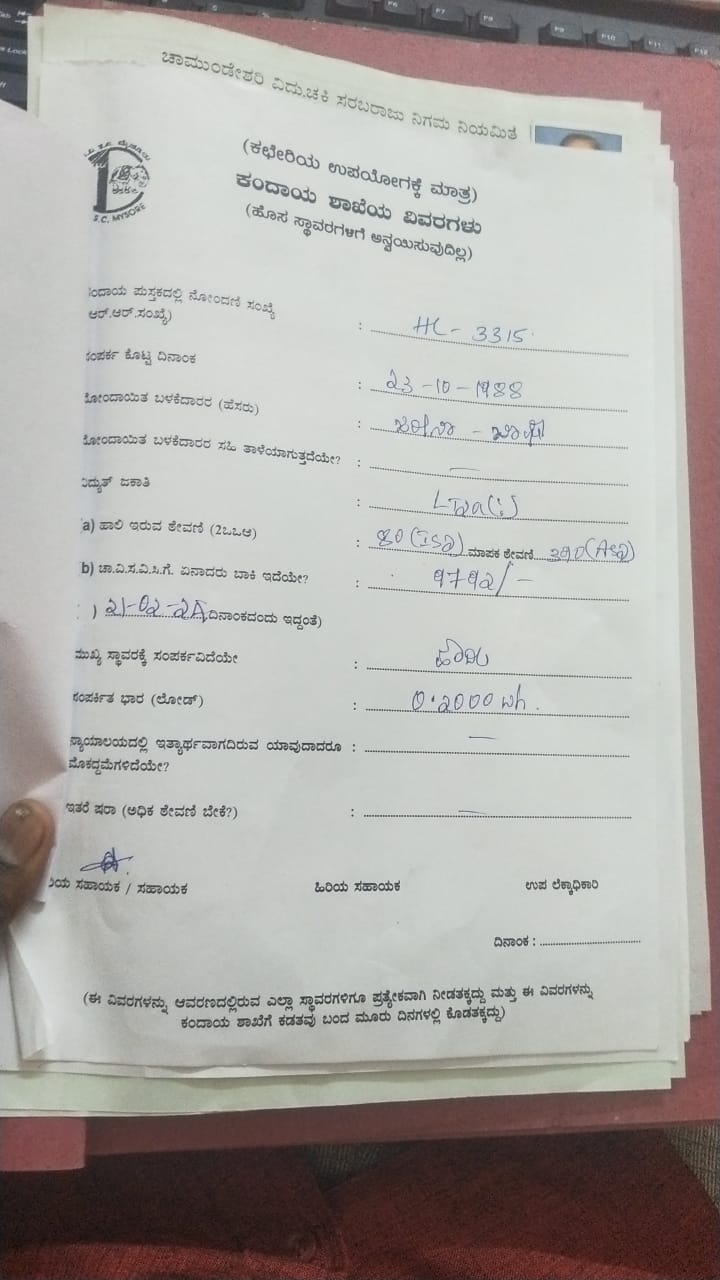 ಚಾಮುಂಡೇಶರಿ ವಿದ್ಯುಚಕಿ ಸರಬರಾಜು ನಿಗಮ ನಿಯಮಿತ
S.C. MYSORE
(ಕಛೇರಿಯ ಉಪಯೋಗಕ್ಕೆ ಮಾತ್ರ)
ಕಂದಾಯ ಶಾಖೆಯ ವಿವರಗಳು
(ಹೊಸ ಸ್ಥಾವರಗಳಿಗೆ ಅನ್ವಯಿಸುವುದಿಲ್ಲ)
ಂದಾಯ ಪುಸ್ತಕದಲ್ಲಿ ನೋಂದಣಿ ಸಂಖ್ಯೆ
ಆರ್.ಆರ್.ಸಂಖ್ಯೆ) : HL - 3315
ಸಂಪರ್ಕ ಕೊಟ್ಟ ದಿನಾಂಕ : 23-10-1988
ನೋಂದಾಯಿತ ಬಳಕೆದಾರರ (ಹೆಸರು) :
ನೋಂದಾಯಿತ ಬಳಕೆದಾರರ ಸಹಿ ತಾಳೆಯಾಗುತ್ತದೆಯೇ? : —
ವಿದ್ಯುತ್ ಜಕಾತಿ :
a) ಹಾಲಿ ಇರುವ ಠೇವಣಿ (2ಒಒಆ) : 80 (ISD) ಮಾಪಕ ಠೇವಣಿ 390 (ASD)
b) ಚಾ.ವಿ.ಸ.ವಿ.ಸಿ.ಗೆ. ಏನಾದರು ಬಾಕಿ ಇದೆಯೇ? : 9792/-
) 21-02-24 ದಿನಾಂಕದಂದು ಇದ್ದಂತೆ)
ಮುಖ್ಯ ಸ್ಥಾವರಕ್ಕೆ ಸಂಪರ್ಕವಿದೆಯೇ :
ಸಂಪರ್ಕಿತ ಭಾರ (ಲೋಡ್) : 0.2000 wh.
ನ್ಯಾಯಾಲಯದಲ್ಲಿ ಇತ್ಯಾರ್ಥವಾಗದಿರುವ ಯಾವುದಾದರೂ : —
ಮೊಕದ್ದಮೆಗಳಿದೆಯೇ?
ಇತರೆ ಷರಾ (ಅಧಿಕ ಠೇವಣಿ ಬೇಕೆ?) : —
ಿಯ ಸಹಾಯಕ / ಸಹಾಯಕ ಹಿರಿಯ ಸಹಾಯಕ ಉಪ ಲೆಕ್ಕಾಧಿಕಾರಿ
ದಿನಾಂಕ :
(ಈ ವಿವರಗಳನ್ನು ಆವರಣದಲ್ಲಿರುವ ಎಲ್ಲಾ ಸ್ಥಾವರಗಳಿಗೂ ಪ್ರತ್ಯೇಕವಾಗಿ ನೀಡತಕ್ಕದ್ದು ಮತ್ತು ಈ ವಿವರಗಳನ್ನು
ಕಂದಾಯ ಶಾಖೆಗೆ ಕಡತವು ಬಂದ ಮೂರು ದಿನಗಳಲ್ಲಿ ಕೊಡತಕ್ಕದ್ದು)